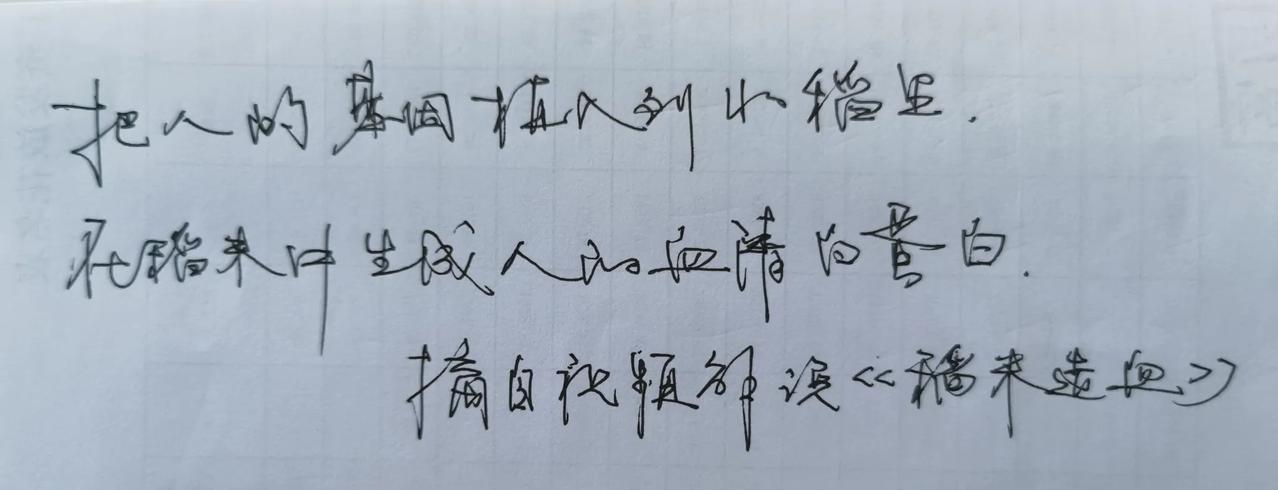 把人的基因植入到水稻里.
在稻米中生成人的血清白蛋白.
摘自视频解说《稻米造血》